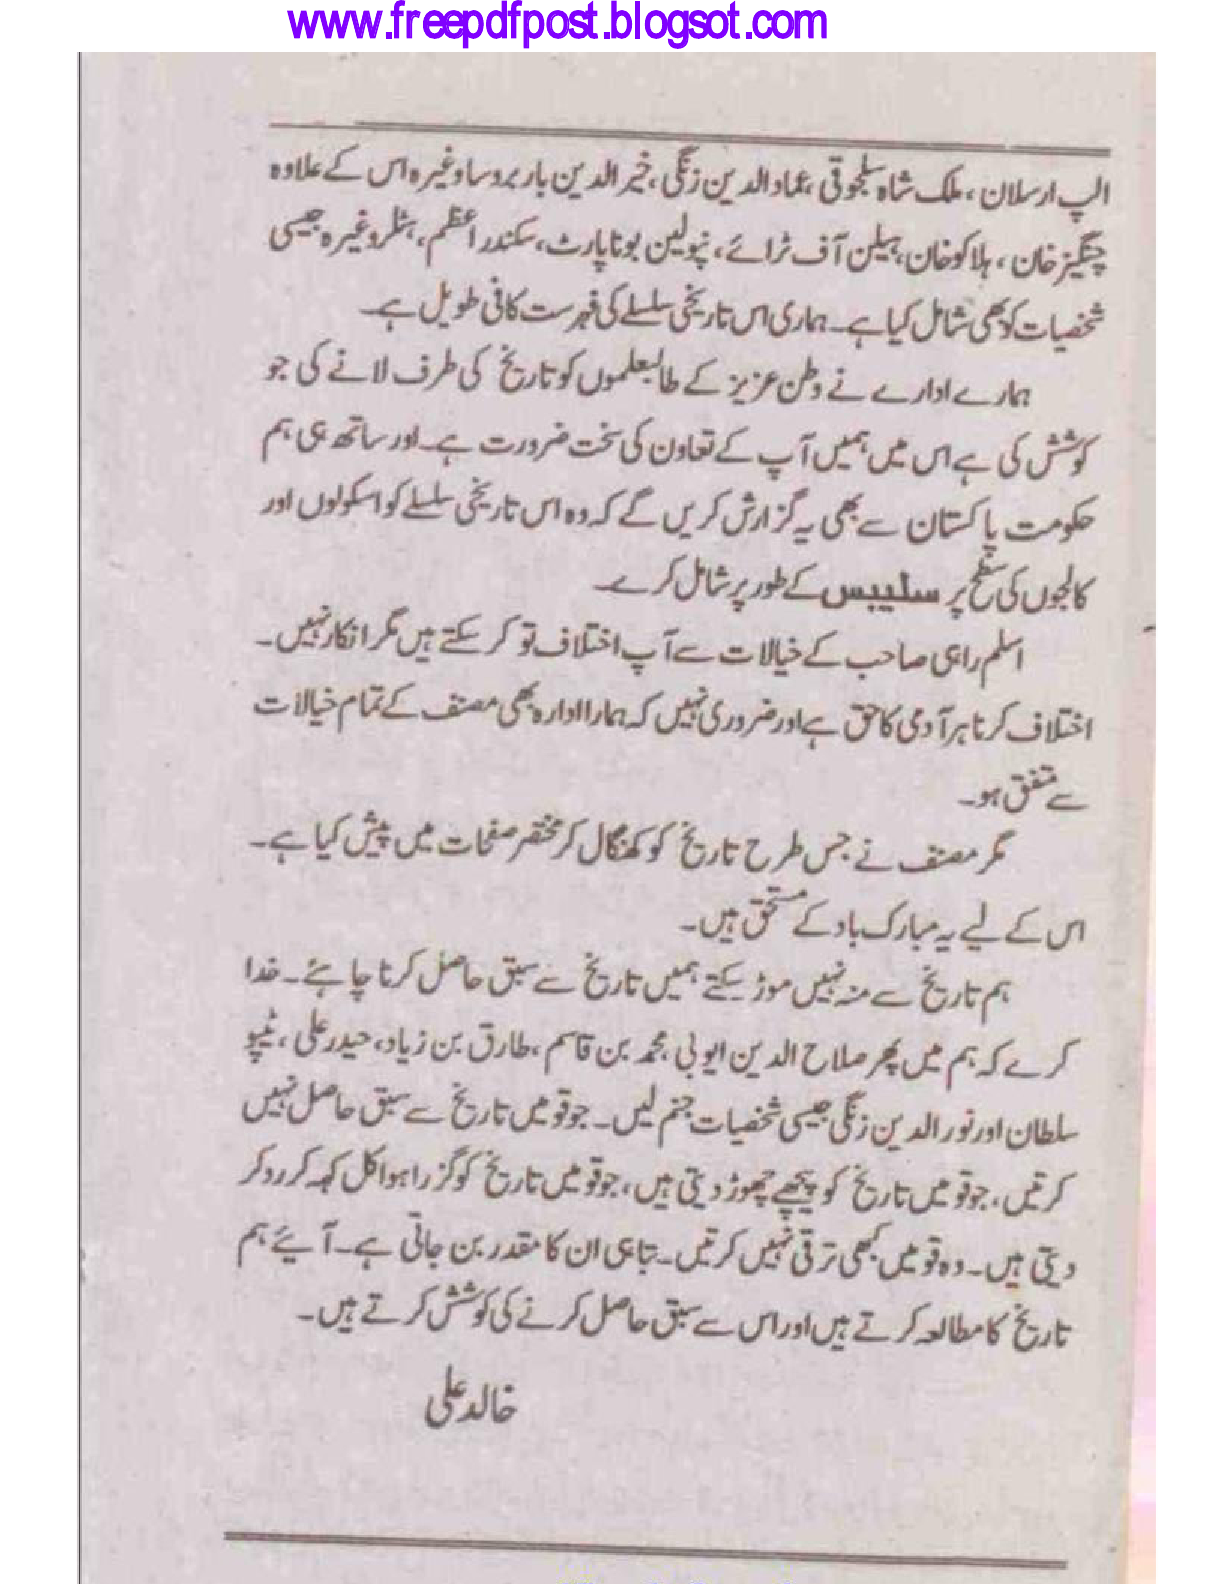 www.freepdfpost.blogsot.com
الپ ارسلان، ملک شاہ سلجوقی، عماد الدین زنگی، خیر الدین باربروسا وغیرہ اس کے علاوہ
چنگیز خان، ہلاکو خان، ہیلن آف ٹرائے، نپولین بوناپارٹ، سکندر اعظم، ہٹلر وغیرہ جیسی
شخصیات کو بھی شامل کیا ہے۔ ہماری اس تاریخی سلسلے کی فہرست کافی طویل ہے۔
ہمارے ادارے نے وطن عزیز کے طالبعلموں کو تاریخ کی طرف لانے کی جو
کوشش کی ہے اس میں ہمیں آپ کے تعاون کی سخت ضرورت ہے۔ اور ساتھ ہی ہم
حکومت پاکستان سے بھی یہ گزارش کریں گے کہ وہ اس تاریخی سلسلے کو اسکولوں اور
کالجوں کی سطح پر سلیبس کے طور پر شامل کرے۔
اسلم راہی صاحب کے خیالات سے آپ اختلاف تو کر سکتے ہیں مگر انکار نہیں۔
اختلاف کرنا ہر آدمی کا حق ہے اور ضروری نہیں کہ ہمارا ادارہ بھی مصنف کے تمام خیالات
سے متفق ہو۔
مگر مصنف نے جس طرح تاریخ کو کھنگال کر مختصر صفحات میں پیش کیا ہے۔
اس کے لیے یہ مبارک باد کے مستحق ہیں۔
ہم تاریخ سے منہ نہیں موڑ سکتے ہمیں تاریخ سے سبق حاصل کرنا چاہئے۔ خدا
کرے کہ ہم میں پھر صلاح الدین ایوبی، محمد بن قاسم، طارق بن زیاد، حیدر علی، ٹیپو
سلطان اور نور الدین زنگی جیسی شخصیات جنم لیں۔ جو قومیں تاریخ سے سبق حاصل نہیں
کرتیں، جو قومیں تاریخ کو پیچھے چھوڑ دیتی ہیں، جو قومیں تاریخ کو گزرا ہوا کل کہہ کر رد کر
دیتی ہیں۔ وہ قومیں کبھی ترقی نہیں کرتیں۔ تباہی ان کا مقدر بن جاتی ہے۔ آیئے ہم
تاریخ کا مطالعہ کرتے ہیں اور اس سے سبق حاصل کرنے کی کوشش کرتے ہیں۔
خالد علی